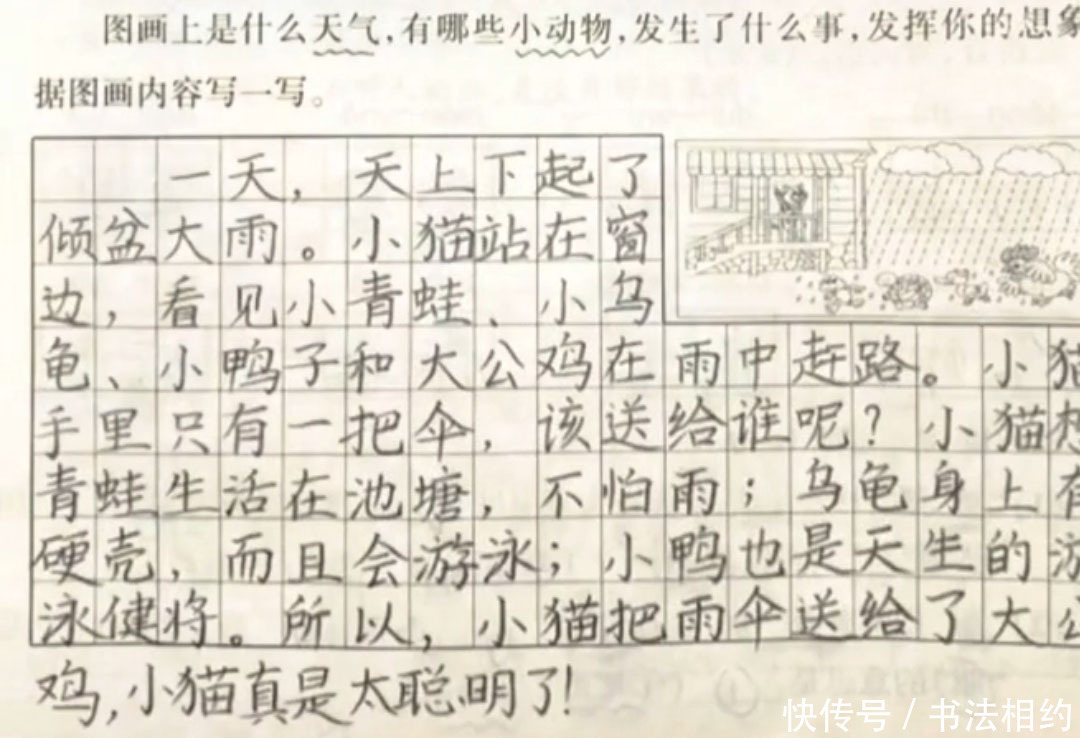 图画上是什么天气,有哪些小动物,发生了什么事,发挥你的想象
据图画内容写一写。
一天,天上下起了
倾盆大雨。小猫站在窗
边,看见小青蛙、小乌
龟、小鸭子和大公鸡在雨中赶路。小猫
手里只有一把伞,该送给谁呢?小猫想
青蛙生活在池塘,不怕雨;乌龟身上有
硬壳,而且会游泳;小鸭也是天生的游
泳健将。所以,小猫把雨伞送给了大公
鸡,小猫真是太聪明了!
快传号/书法相约